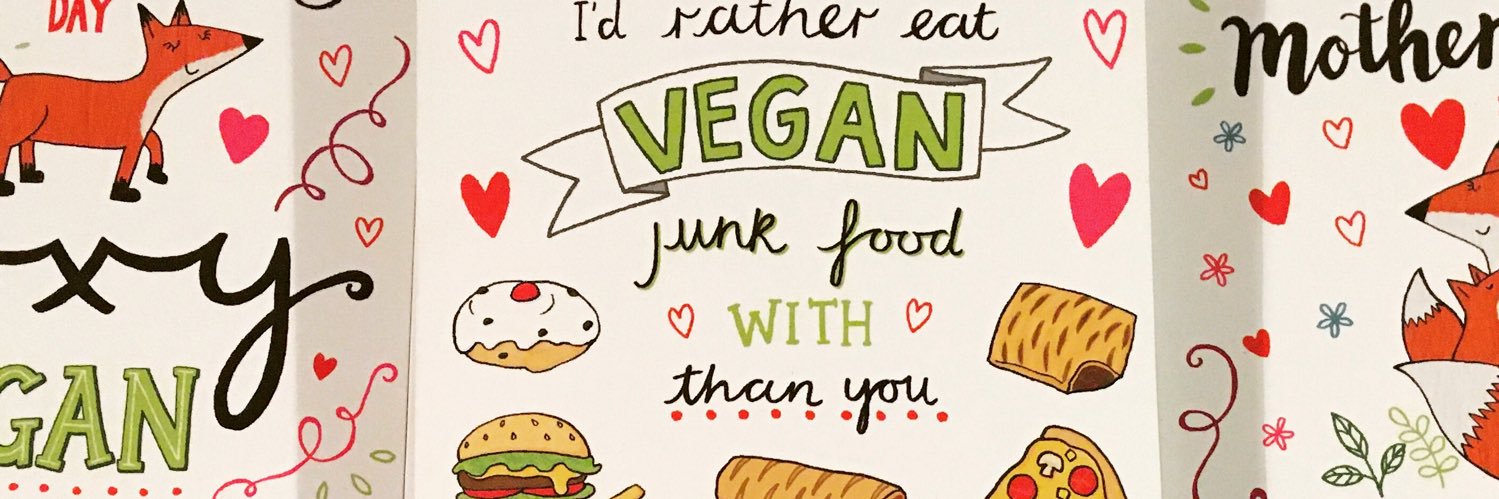 DAY
xy
GAN
I'd rather eat
VEGAN
junk food
WITH
than you
Mother